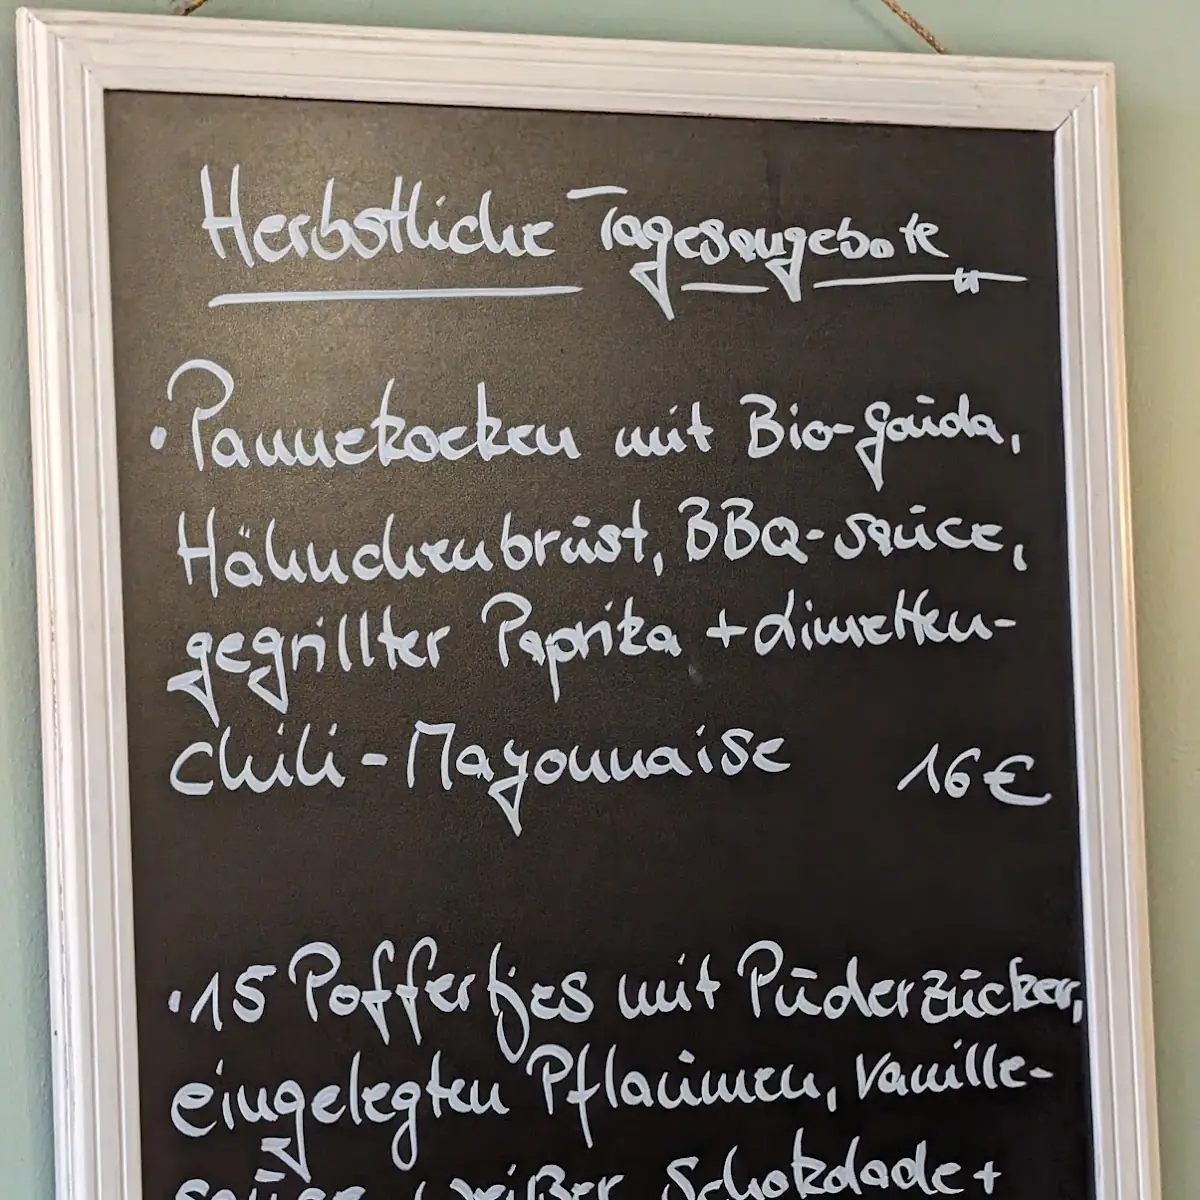 Herbstliche Tagesangebote
• Pannekoeken mit Bio-Gouda,
Hähnchenbrust, BBQ-Sauce,
gegrillter Paprika + Limetten-
Chili-Mayonnaise 16€
• 15 Poffertjes mit Puderzucker,
eingelegten Pflaumen, Vanille-
sauce, weißer Schokolade +